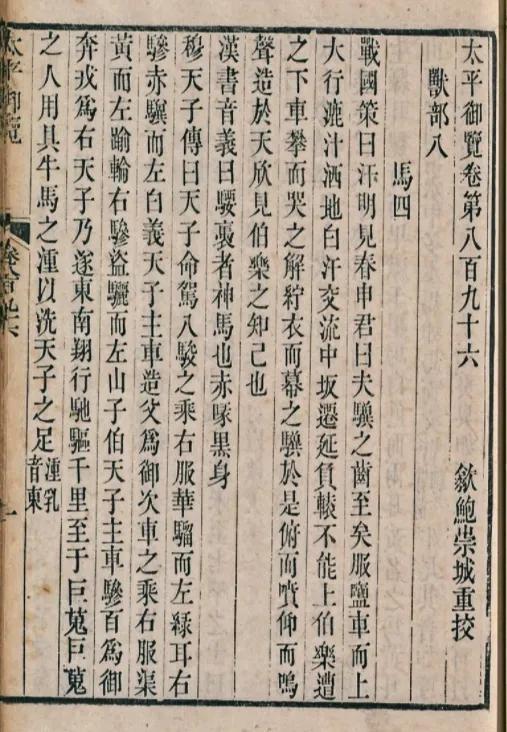 太平御覽卷第八百九十六 歙鮑崇城重挍
獸部八
馬四
戰國策曰汗明見春申君曰夫驥之齒至矣服鹽車而上
大行漉汁洒地白汗交流中坂遷延負轅不能上伯樂遭
之下車攀而哭之解紵衣而冪之驥於是俯而噴仰而鳴
聲造於天欣見伯樂之知己也
漢書音義曰騕褭者神馬也赤喙黑身
穆天子傳曰天子命駕八駿之乘右服華騮而左綠耳右
驂赤驥而左白義天子主車造父為御次車之乘右服渠
黃而左踰輪右驂盜驪而左山子伯天子主車驂百為御
奔戎為右天子乃遂東南翔行馳驅千里至于巨蒐巨蒐
之人用具牛馬之湩以洗天子之足湩乳
音東
太平御覽
卷八百九十六
一